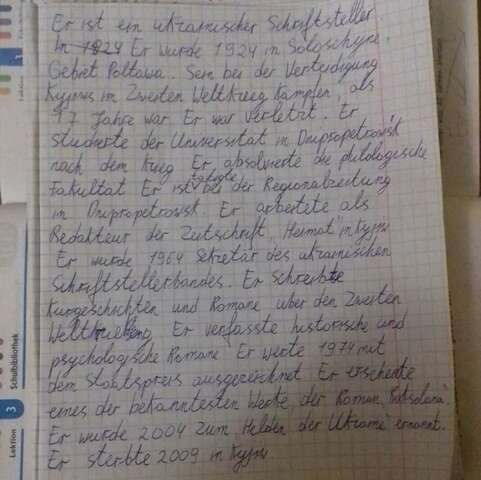 Er ist ein ukrainischer Schriftsteller.
In 1924 Er wurde 1924 in Soloschyne
Gebiet Poltawa. Sein bei der Verteidigung
Kyjiws im Zweiten Weltkrieg kämpfen, als
17 Jahre war. Er war verletzt. Er
studierte der Universität in Dnipropetrowsk
nach dem Krieg. Er absolvierte die philologische
Fakultät. Er ist tätigte bei der Regionalzeitung
in Dnipropetrowsk. Er arbeitete als
Redakteur der Zeitschrift „Heimat" in Kyjiw
Er wurde 1964 Sekretär des ukrainischen
Schriftstellerbandes. Er schreibte
Kurgeschichten und Romane über den Zweiten
Er verfasste historische und
psychologische Romane. Er werte 1974 mit
dem Staatspreis ausgezeichnet. Er erschente
eines der bekanntesten Werke, der Roman
Er wurde 2004 zum „Helden der Ukraine" ernannt.
Er sterbte 2009 in Kyjiw
3
Schulbibliothek
Lektion